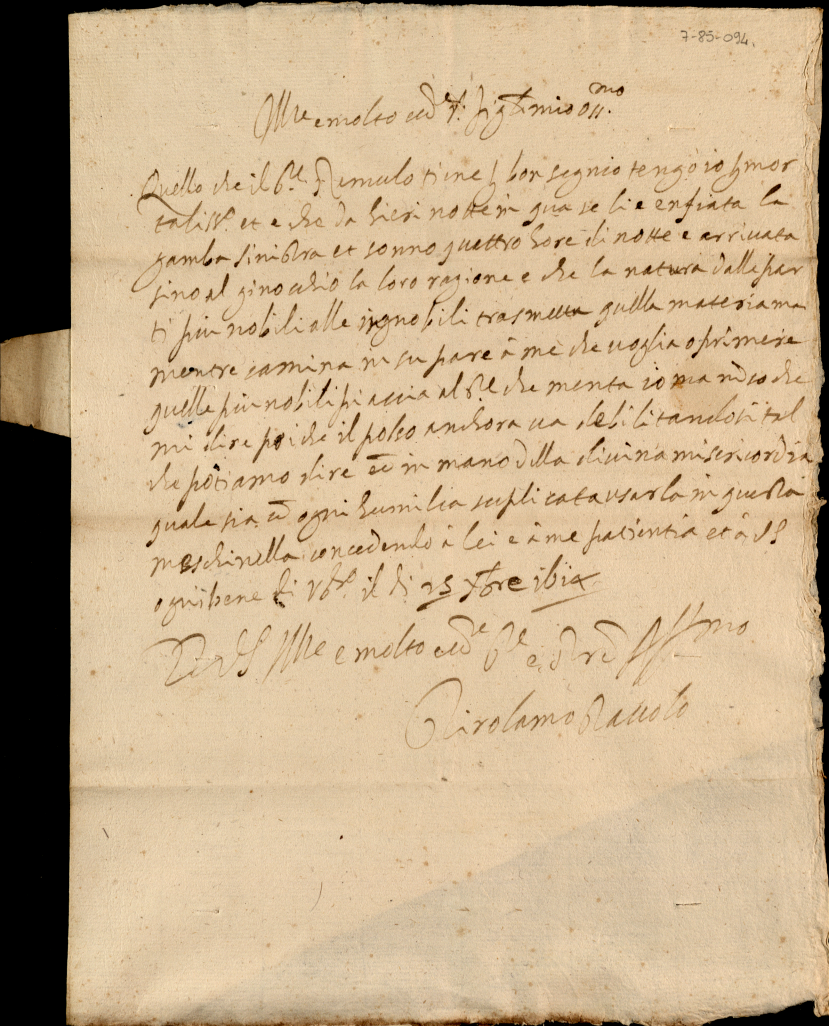 7-85-094.
Ill.re e molto ecc.te S.r mio oss.mo
Quello che il S.r Remulo tiene p bon segnio tengo io p mor
taliss.o et e che da hieri notte in qua se li e enfiata la
gamba sinistra et sonno quattro hore di notte e arrivata
sino al ginochio la loro ragione e che la natura dalle par
ti piu nobili alle ingnobili trasmetta quella materia ma
mentre camina in su pare à me che voglia oprimere
quelle piu nobili piaccia al che menta io ma
mi dire poi che il polso anchora va debilitandosi tal
che potiamo dire in mano della divina misericordia
quale sia ogni humilta suplicata usarla in questa
meschinella concedendo à lei e à me patientia et à VS
ogni bene di il di 23 Xbre
Di VS Ill.re e molto ecc.te
Girolamo